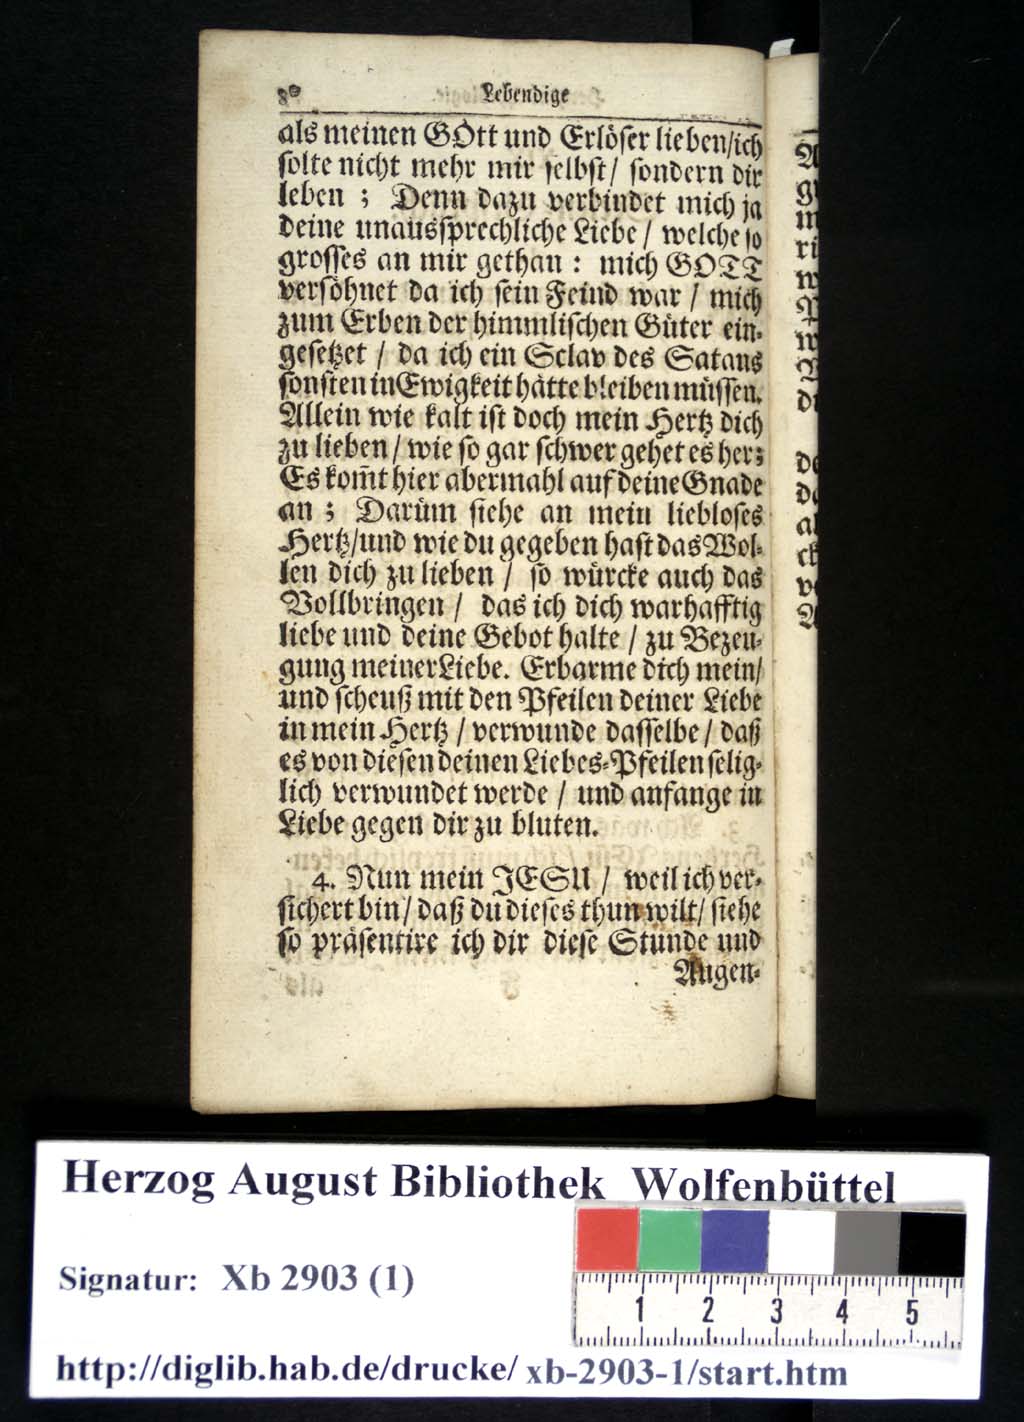 80 Lebendige
als meinen GOtt und Erlöser lieben/ich
solte nicht mehr mir selbst/ sondern dir
leben ; Denn dazu verbindet mich ja
deine unaussprechliche Liebe / welche so
grosses an mir gethan : mich GOTT
versöhnet da ich sein Feind war / mich
zum Erben der himmlischen Güter ein-
gesetzet / da ich ein Sclav des Satans
sonsten in Ewigkeit hätte bleiben müssen.
Allein wie kalt ist doch mein Hertz dich
zu lieben / wie so gar schwer gehet es her;
Es kom̃t hier abermahl auf deine Gnade
an ; Darüm siehe an mein liebloses
Hertz/und wie du gegeben hast das Wol-
len dich zu lieben / so würcke auch das
Vollbringen / das ich dich warhafftig
liebe und deine Gebot halte / zu Bezeu-
gung meiner Liebe. Erbarme dich mein/
und scheuß mit den Pfeilen deiner Liebe
in mein Hertz / verwunde dasselbe / daß
es von diesen deinen Liebes-Pfeilen selig-
lich verwundet werde / und anfange in
Liebe gegen dir zu bluten.
4. Nun mein JESU / weil ich ver-
sichert bin / daß du dieses thun wilt/ siehe
so präsentire ich dir diese Stunde und
Augen-
Herzog August Bibliothek Wolfenbüttel
Signatur: Xb 2903 (1)
1 2 3 4 5
http://diglib.hab.de/drucke/ xb-2903-1/start.htm